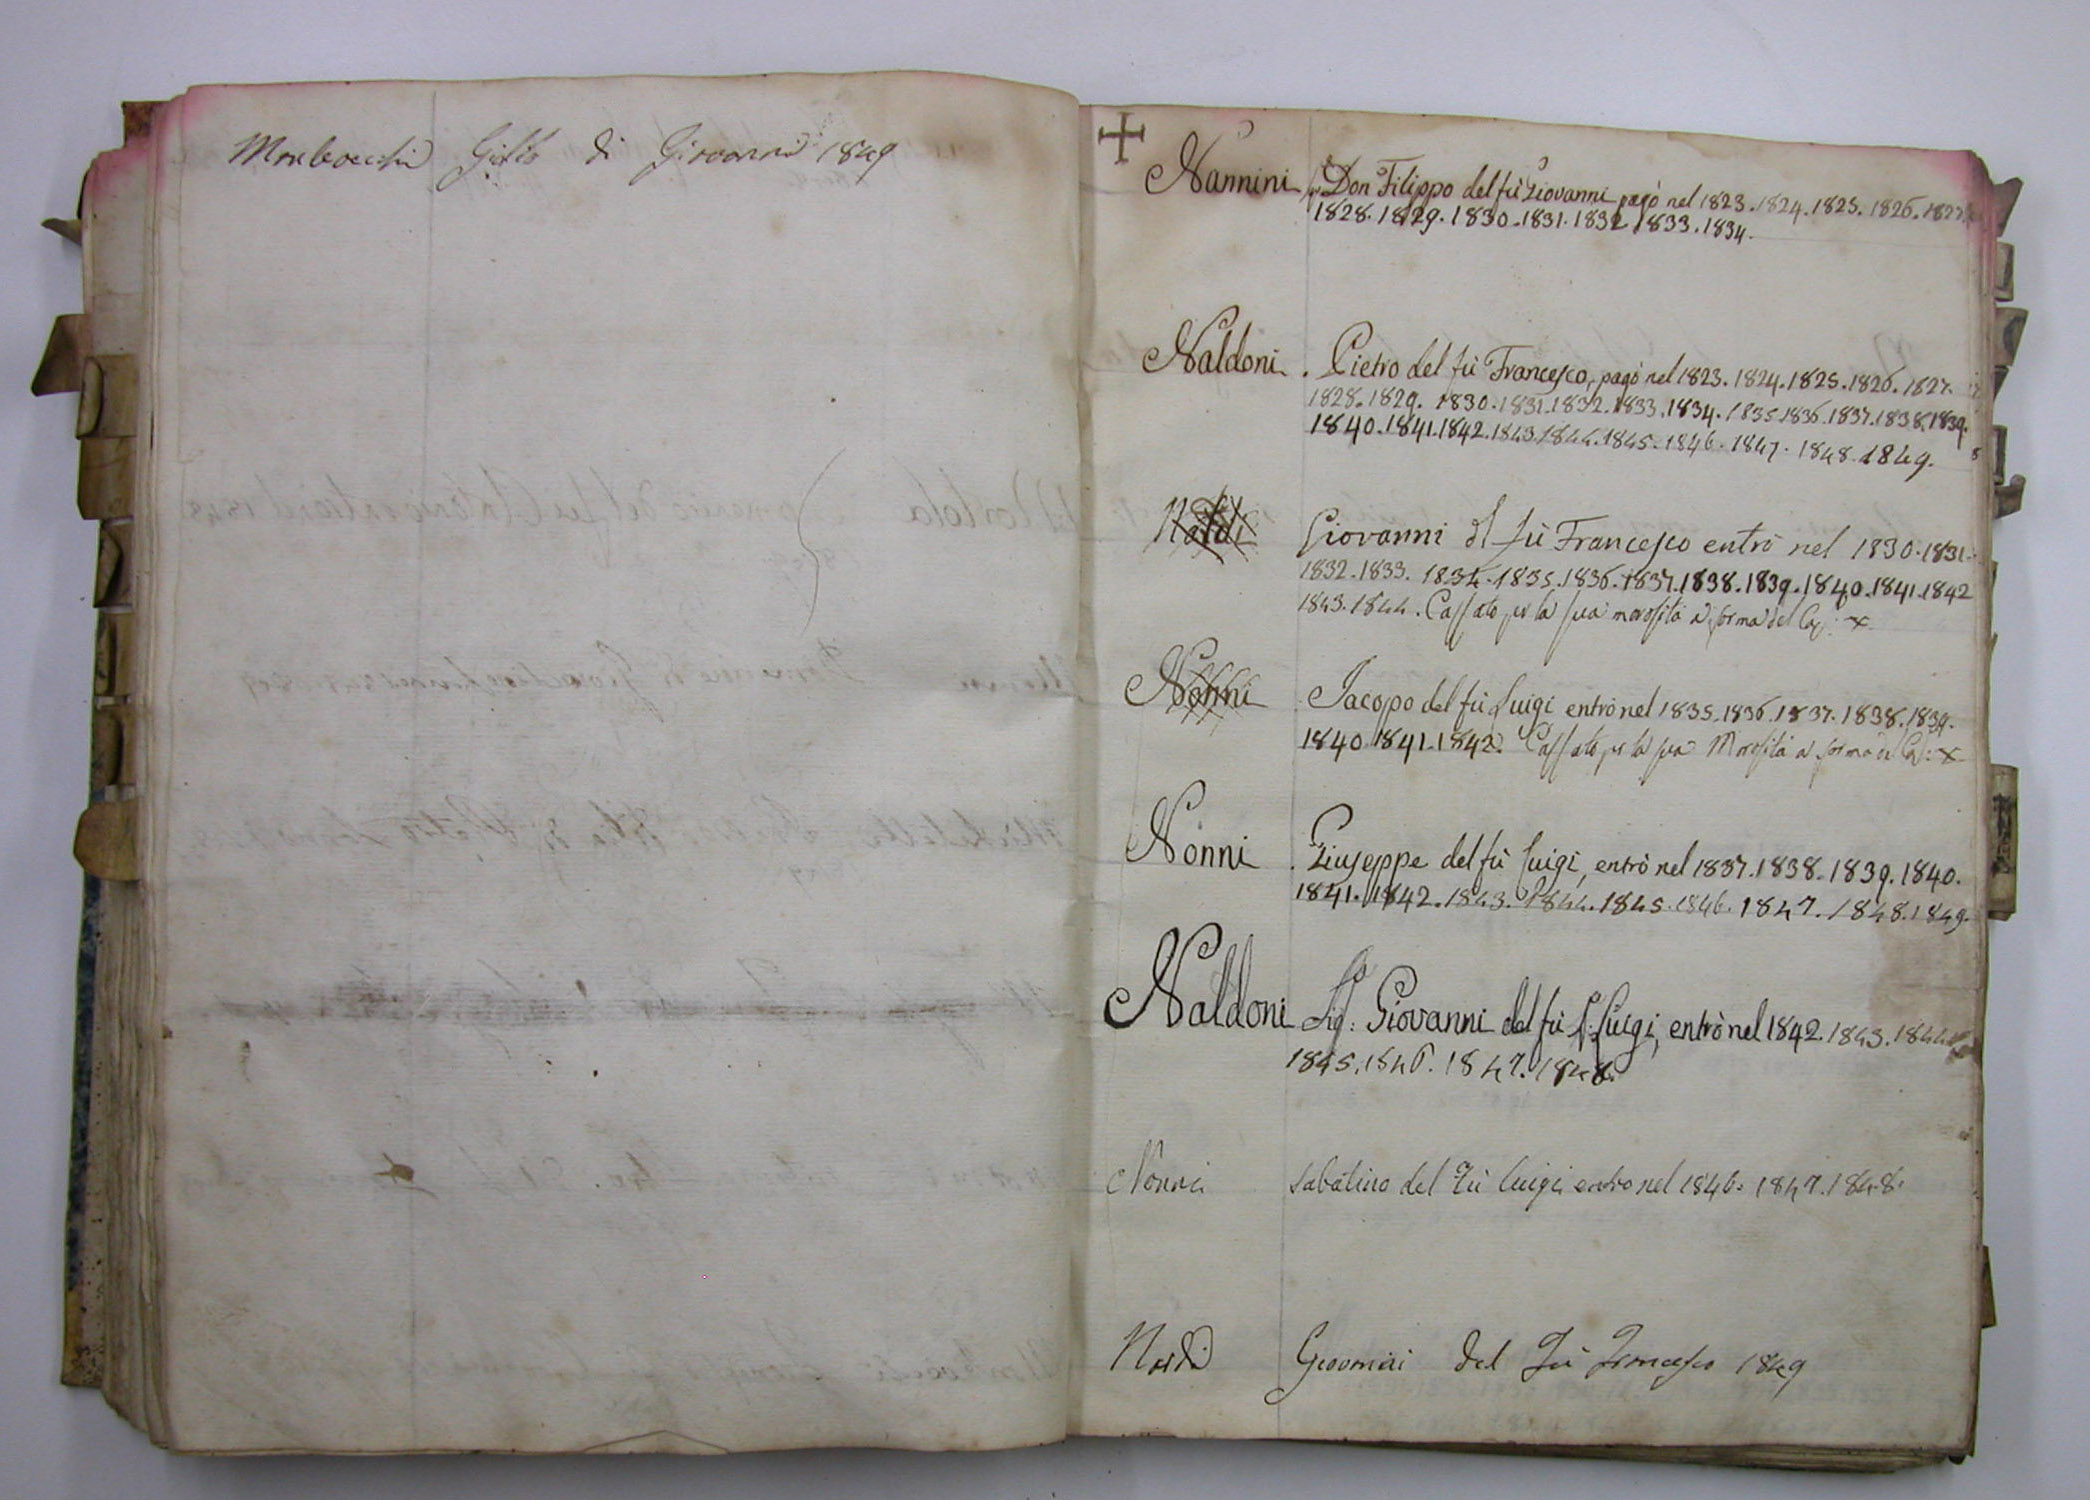 di Giovanni 1849
Nannini Don Filippo del fù Giovanni pagò nel 1823. 1824. 1825. 1826. 1827.
1828. 1829. 1830. 1831. 1832. 1833. 1834.
Naldoni. Pietro del fù Francesco, pagò nel 1823. 1824. 1825. 1826. 1827.
1828. 1829. 1830. 1831. 1832. 1833. 1834. 1835. 1836. 1837. 1838. 1839.
1840. 1841. 1842. 1843. 1844. 1845. 1846. 1847. 1848. 1849.
Naldi Giovanni del fù Francesco entrò nel 1830. 1831.
1832. 1833. 1834. 1835. 1836. 1837. 1838. 1839. 1840. 1841. 1842
1843. 1844. Cassato per la sua morosità a forma del Cap: X
Nonni. Jacopo del fù Luigi entrò nel 1835. 1836. 1837. 1838. 1839.
1840. 1841. 1842. Cassato per la sua Morosità a forma del Cap: X
Nonni. Giuseppe del fù Luigi, entrò nel 1837. 1838. 1839. 1840.
1841. 1842. 1843. 1844. 1845. 1846. 1847. 1848. 1849.
Naldoni Sig: Giovanni del fù S: Luigi, entrò nel 1842. 1843. 1844
1845. 1846. 1847. 1848.
Nonni Sabatino del Fù Luigi entro nel 1846. 1847. 1848.
Naldi Giovanni del Fù Francesco 1849